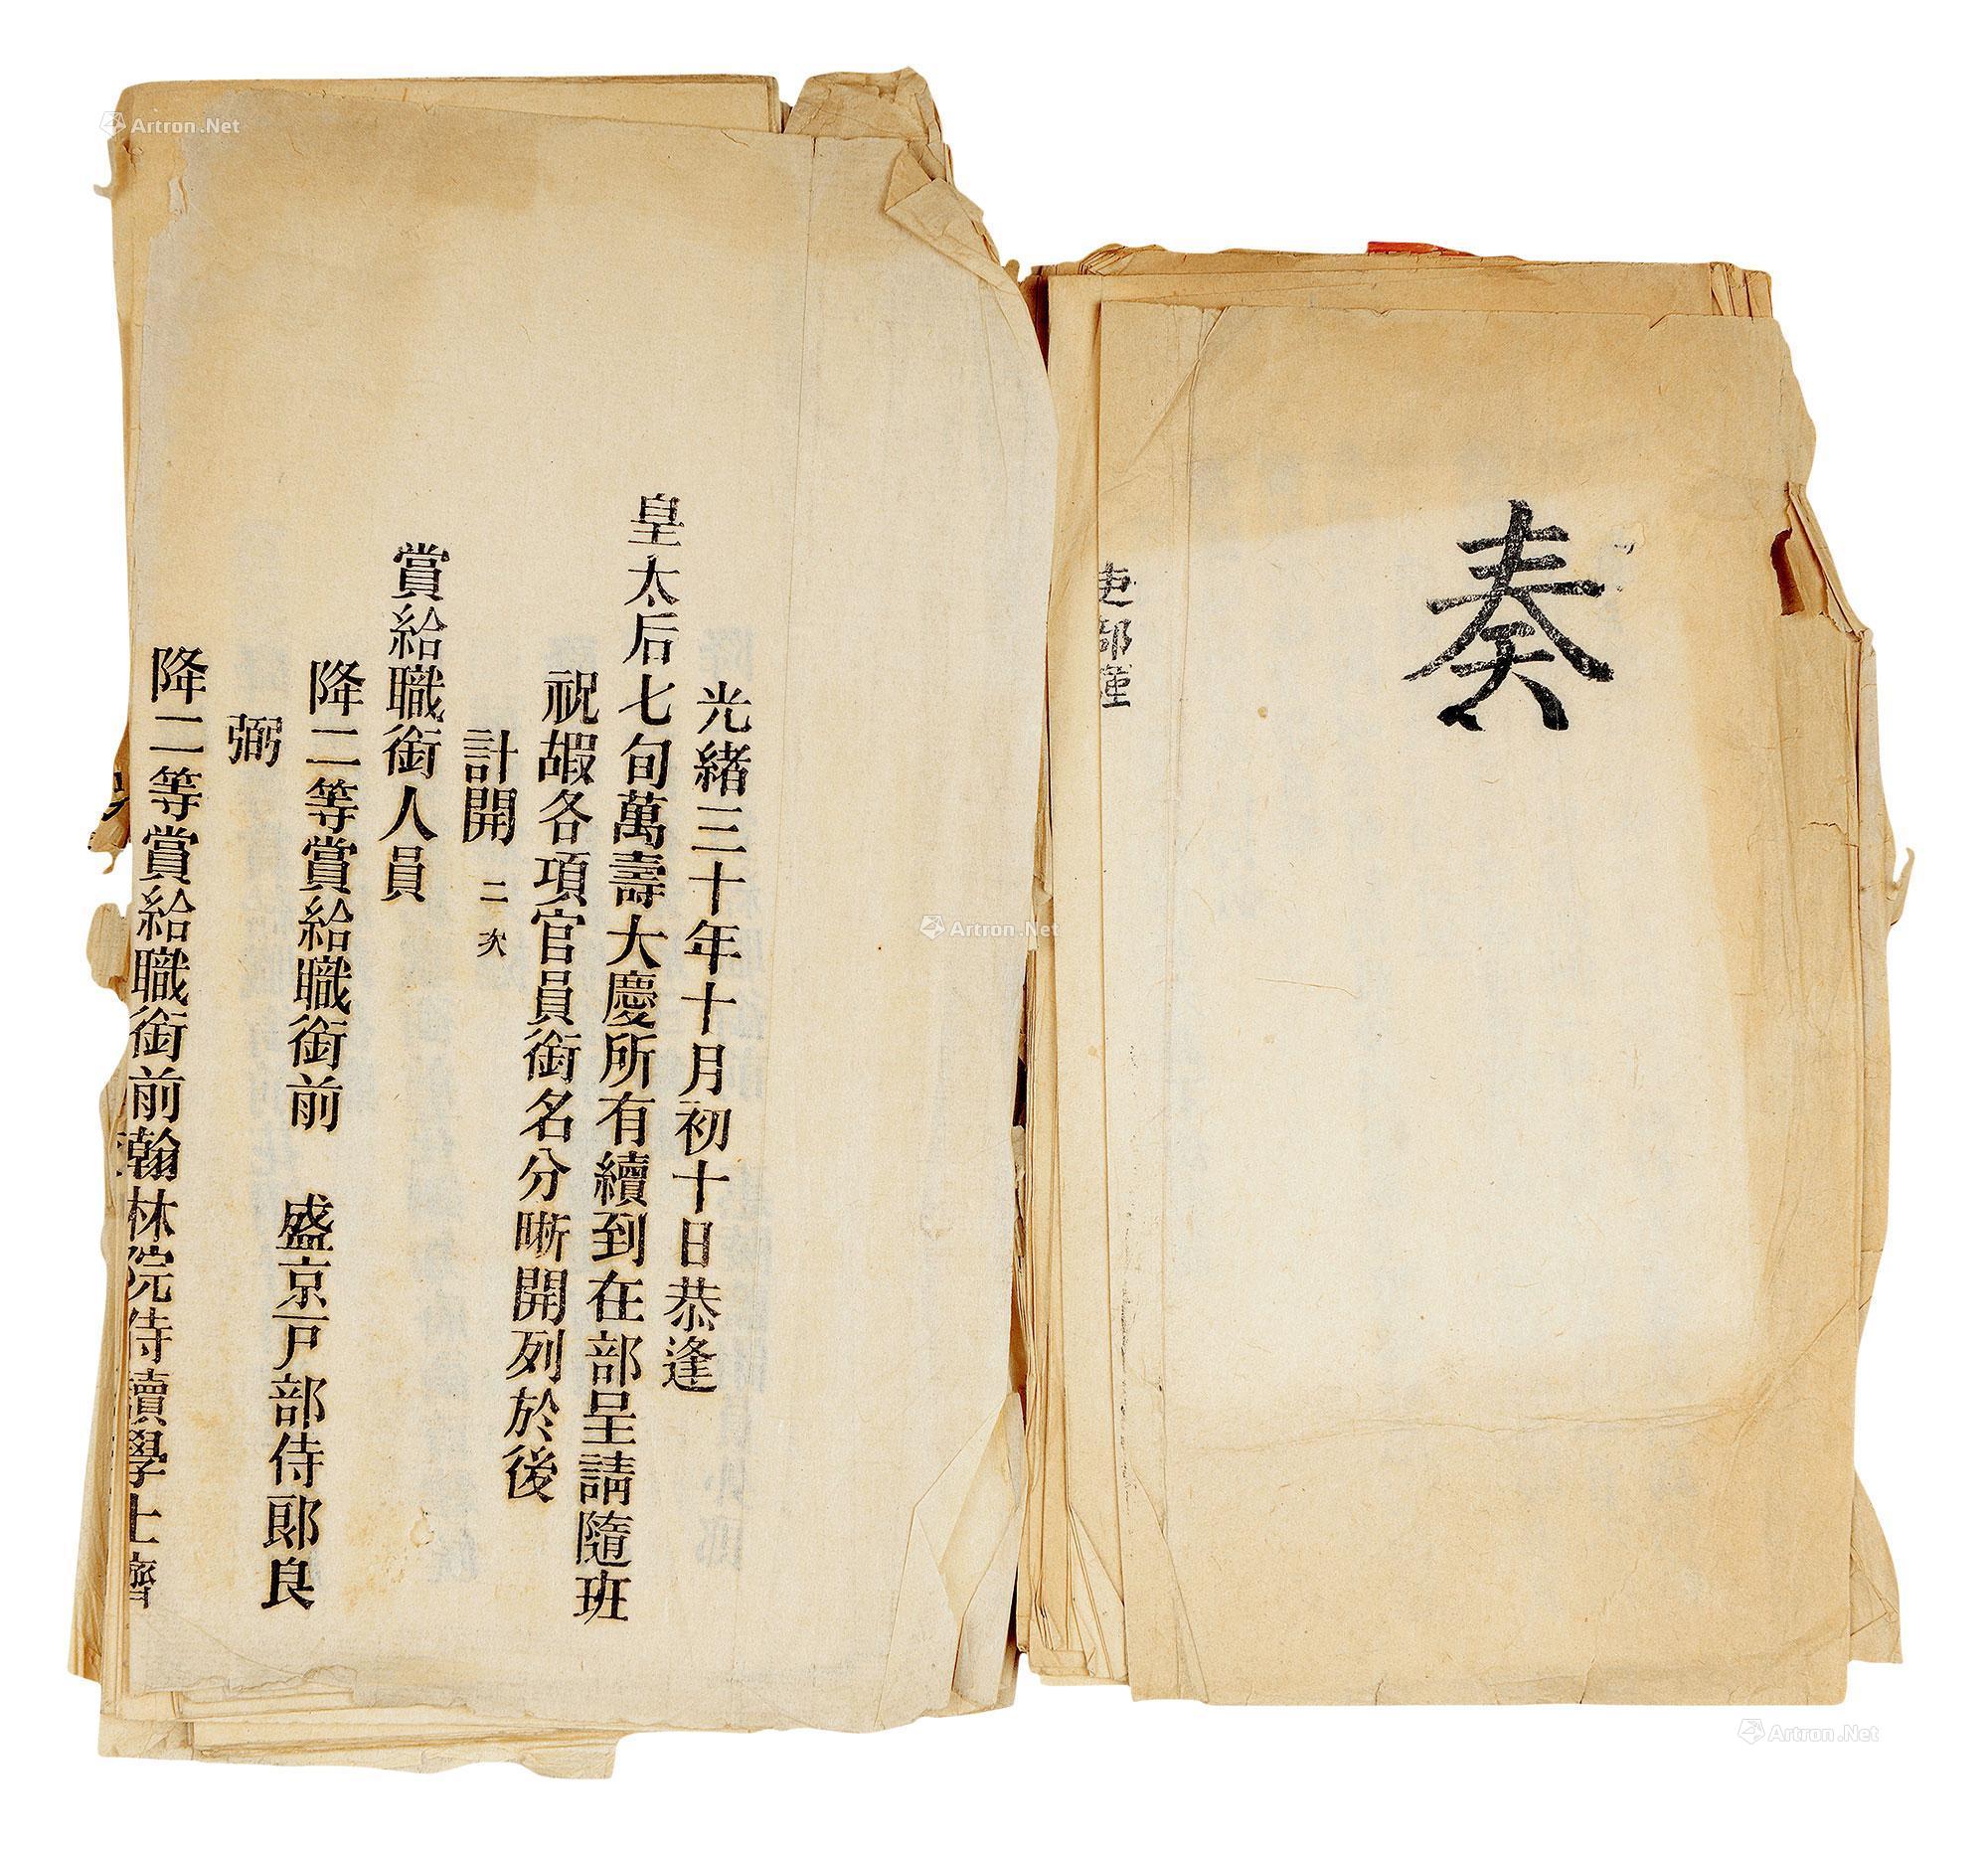 奏
吏部謹
光緒三十年十月初十日恭逢
皇太后七旬萬壽大慶所有續到在部呈請隨班
祝嘏各項官員銜名分晰開列於後
計開 二次
賞給職銜人員
降二等賞給職銜前 盛京戶部侍郎良
弼
降二等賞給職銜前翰林院侍讀學士濟
Artron.Net
Artron.Net
Artron.Net